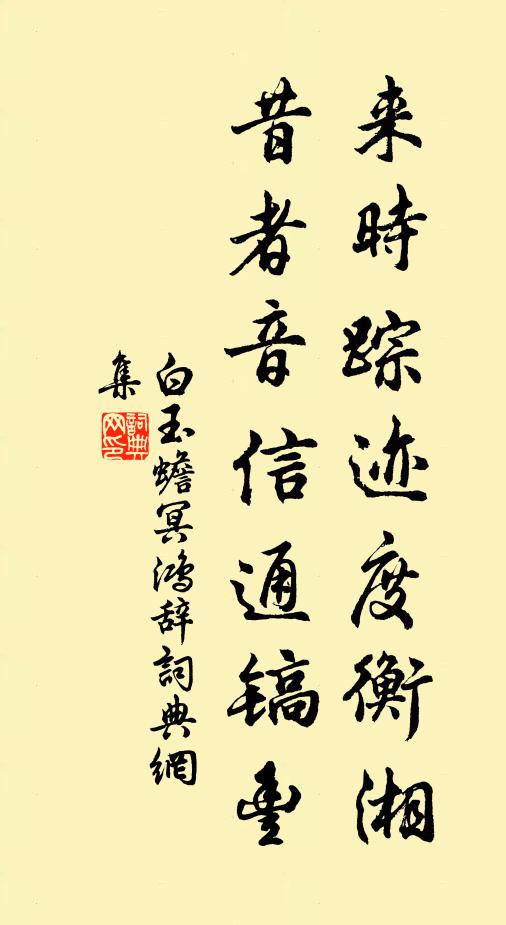 来時踪迹度衡湘
昔者音信通镐豊
白玉蟾冥鴻辞詞典網
集
詞典
网印